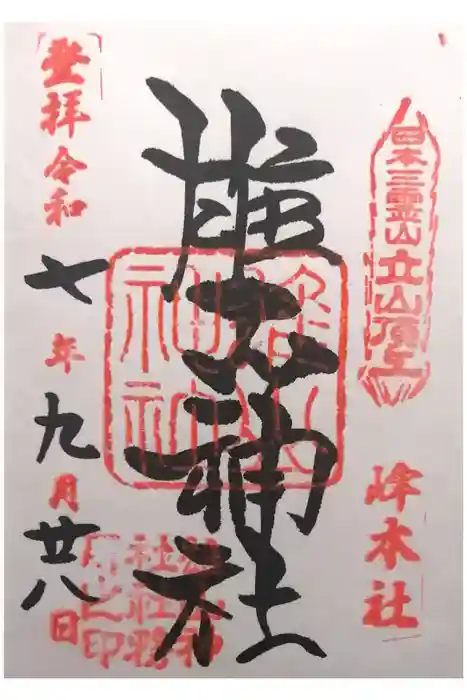 日本三霊山立山頂上
峰本社
雄山神社
雄山
神社
登拝令和七年九月廿八日
雄山神
社社務
所之印